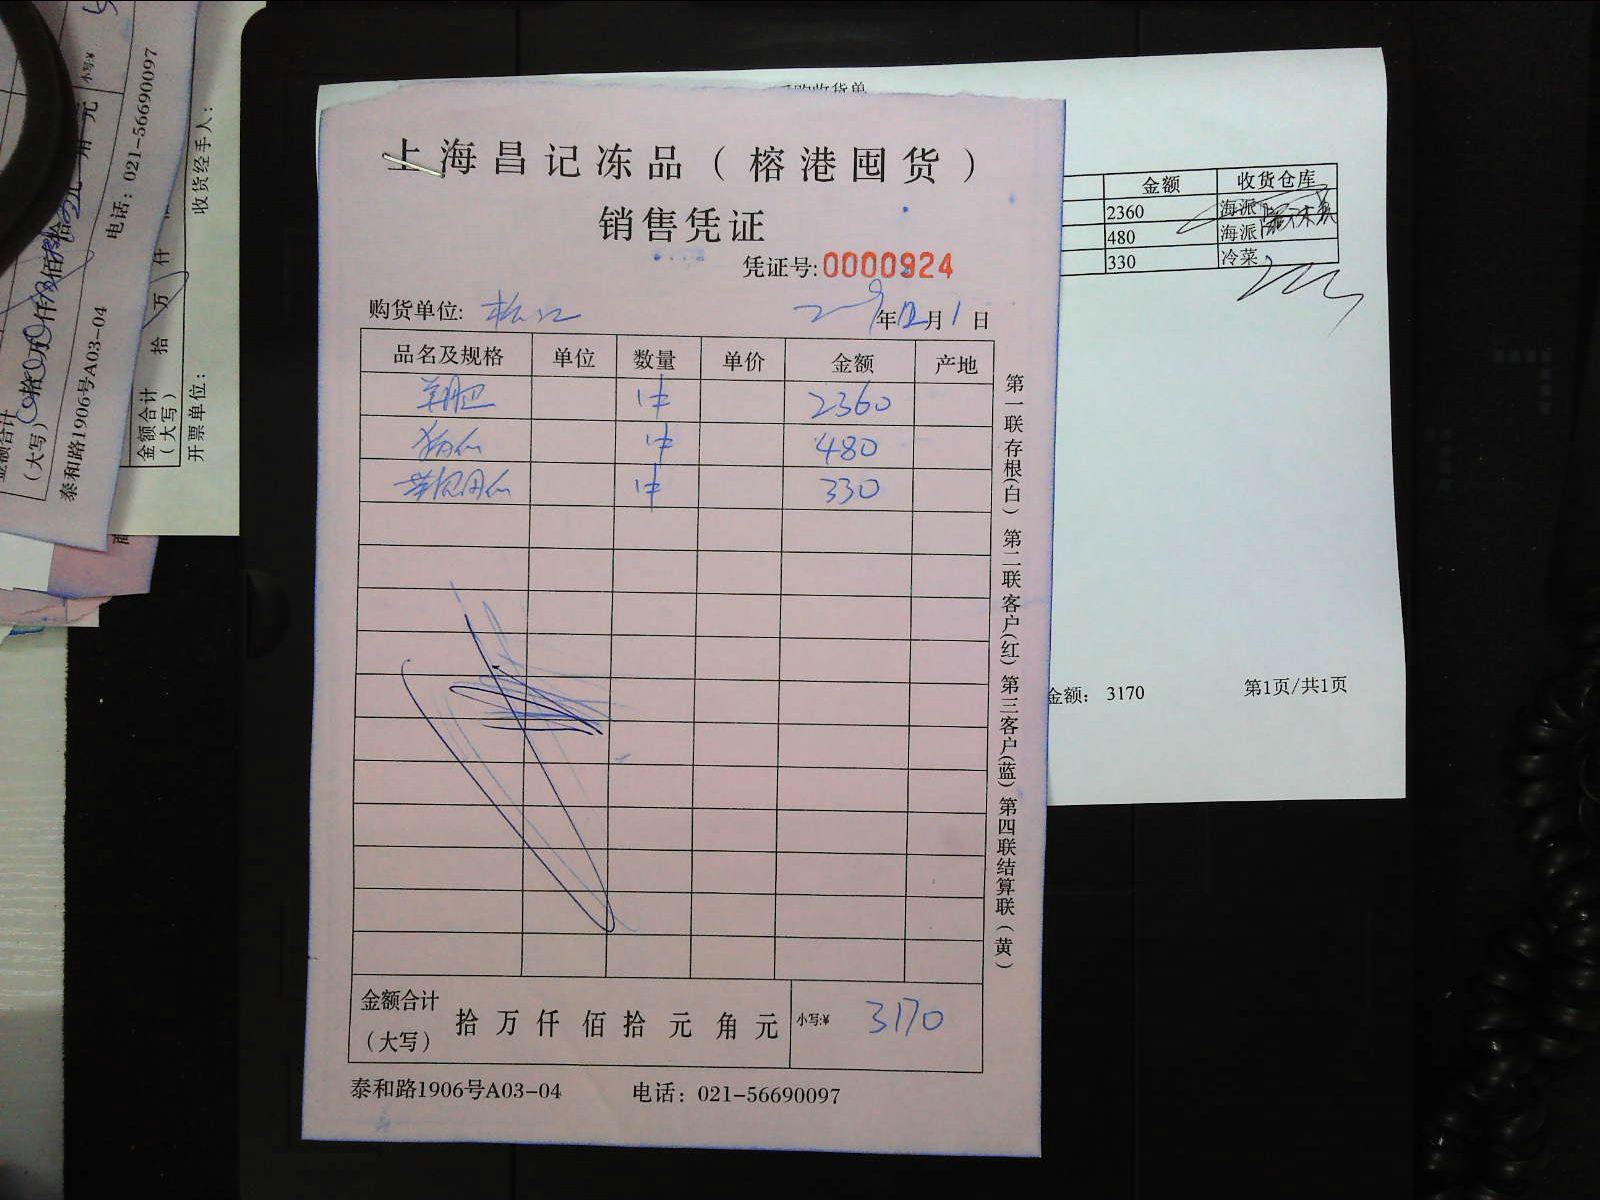 上海昌记冻品(榕港囤货)
销售凭证
凭证号:0000924
购货单位: 松江 年12月1日
品名及规格 单位 数量 单价 金额 产地
羊肥 1件 2360
1件 480
1件 330
第一联存根(白) 第二联客户(红) 第三客户(蓝) 第四联结算联(黄)
金额合计(大写) 拾万仟佰拾元角元 小写:¥ 3170
泰和路1906号A03-04 电话:021-56690097
购收货单
金额 收货仓库
2360 海派
480 海派
330 冷菜
金额: 3170 第1页/共1页
小写:¥
(大写)
泰和路1906号A03-04 电话:021-56690097
金额合计
(大写) 拾万仟
开票单位: 收货经手人: